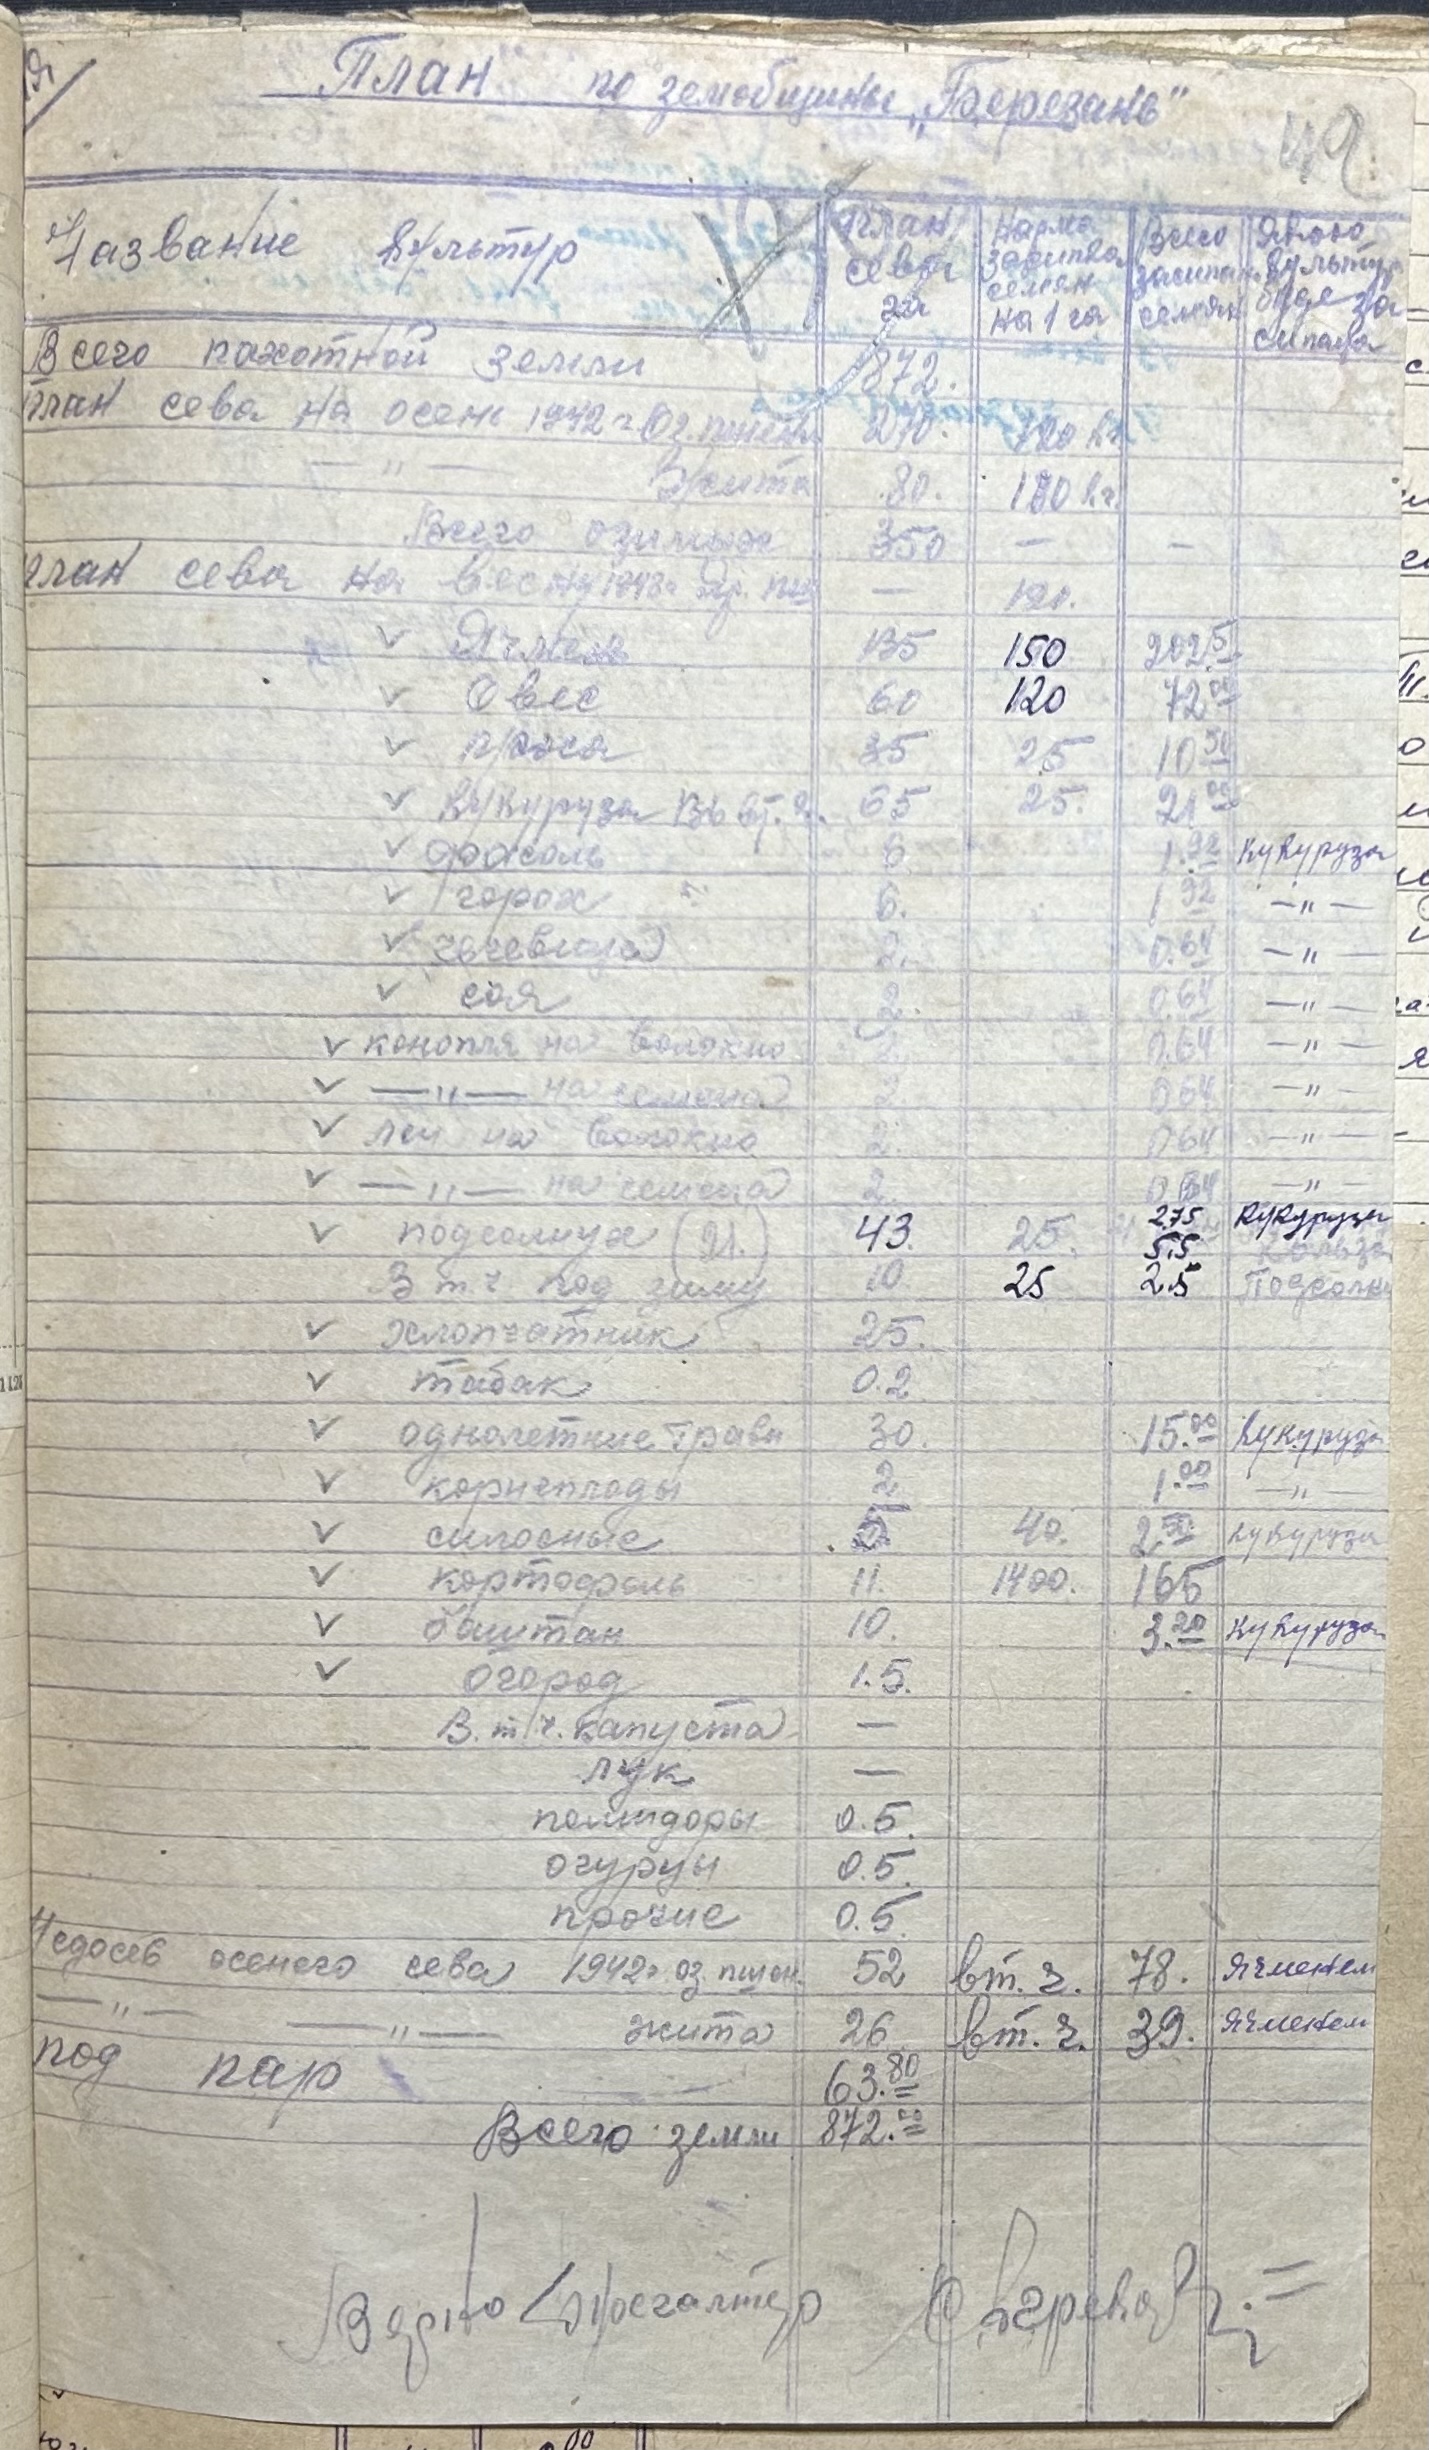 План по земобщины „Березань"
49
Название культур | План сева га | Норма засипва семян на 1 га | Всего засипа семян | Якою культур буде за сипана
Всего пахотной земли 872.
План сева на осень 1942 г. Оз. 270.
— " — Жита 80. кг.
Всего озимых 350 — —
План сева на весну 1943 г. Яр. пш — 120.
v Ячмень 135 150 202.5
v Овес 60 120 72.00
v проса 35 25 10.50
v Кукуруза 65 25. 21.00
v фасоль 6 1.92 кукуруза
v горох 6. 1.92 — " —
v чечевица 2. 0.64 — " —
v соя 2. 0.64 — " —
v конопля на волокно 2 0.64 — " —
v — " — на семена 2 0.64 — " —
v лен на волокно 2. 0.64 — " —
v — " — на семена 2. 0.64 — " —
v подсолнух (21.) 43. 25. 2.75 5.5 кукурузы
В т ч под зиму 10 25 2.5 Подсолн
v хлопчатник 25.
v табак 0.2
v однолетние травы 30. 15.00 кукуруза
v корнеплоды 2 1.00 — " —
v силосные 5 40. 2.50 кукуруза
v кортофель 11. 1400. 165
v баштан 10. 3.20 кукуруза
v огород 1.5.
В. т. ч. капуста —
лук —
помидоры 0.5.
огурцы 0.5.
прочие 0.5.
Недосев осенего сева 1942 г оз. пшен. 52 вт. ч. 78. ячменем
— " — — " — жита 26 вт. ч. 39. ячменем
под пар 63.80
Всего земли 872.00
Верно Бухгалтер